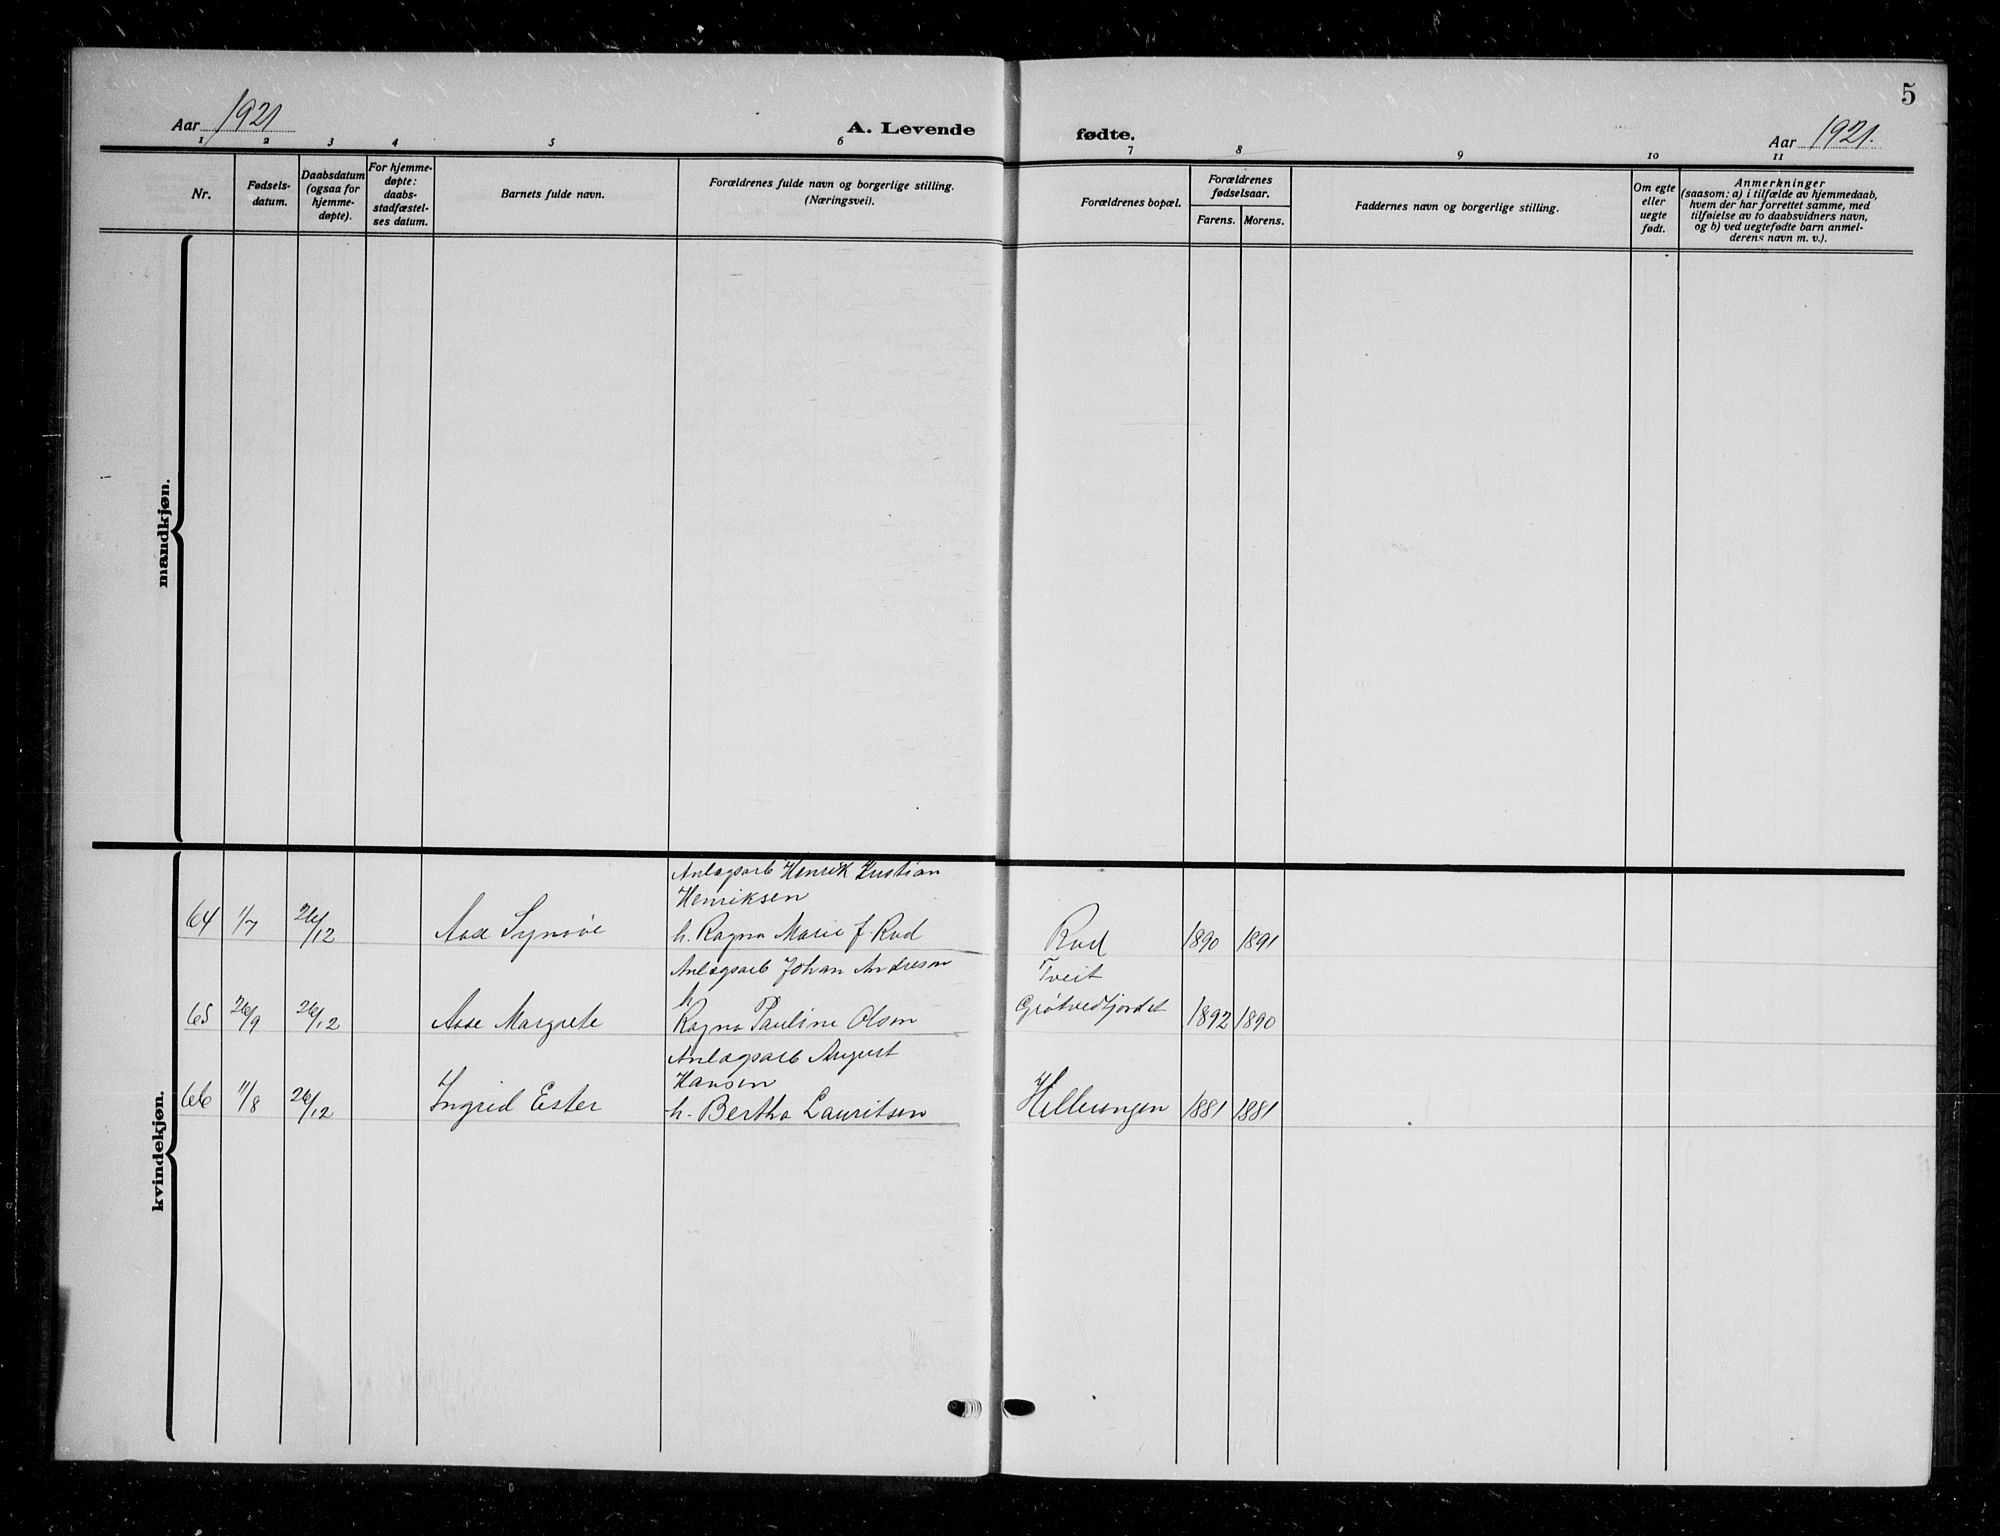 5
Aar 1921
A. Levende fødte.
Aar 1921.
1 2 3 4 5 6 7 8 9 10 11
Nr.
Fødsels-
datum.
Daabsdatum
(ogsaa for
hjemme-
døpte).
For hjemme-
døpte:
daabs-
stadfæstel-
ses datum.
Barnets fulde navn.
Forældrenes fulde navn og borgerlige stilling.
(Næringsvei).
Forældrenes bopæl.
Forældrenes
fødselsaar.
Farens. Morens.
Faddernes navn og borgerlige stilling.
Om egte
eller
uegte
født.
Anmerkninger
(saasom: a) i tilfælde av hjemmedaab,
hvem der har forrettet samme, med
tilføielse av to daabsvidners navn,
og b) ved uegtefødte barn anmel-
derens navn m. v.).
mandkjøn.
kvindekjøn.
Anlægsarb Henrik Kristian
Henriksen
64 1/7 26/12 Aase Synøve h. Ragna Marie f. Rud Rud 1890 1891
Anlægsarb Johan Andresen Tveit
h
65 26/9 26/12 Aase Margrete Ragna Pauline Olsen Grøtvedtjordet 1892 1890
Anlægsarb August
Hansen
66 11/8 26/12 Ingrid Ester h. Bertha Lauritsen Hellerengen 1881 1881